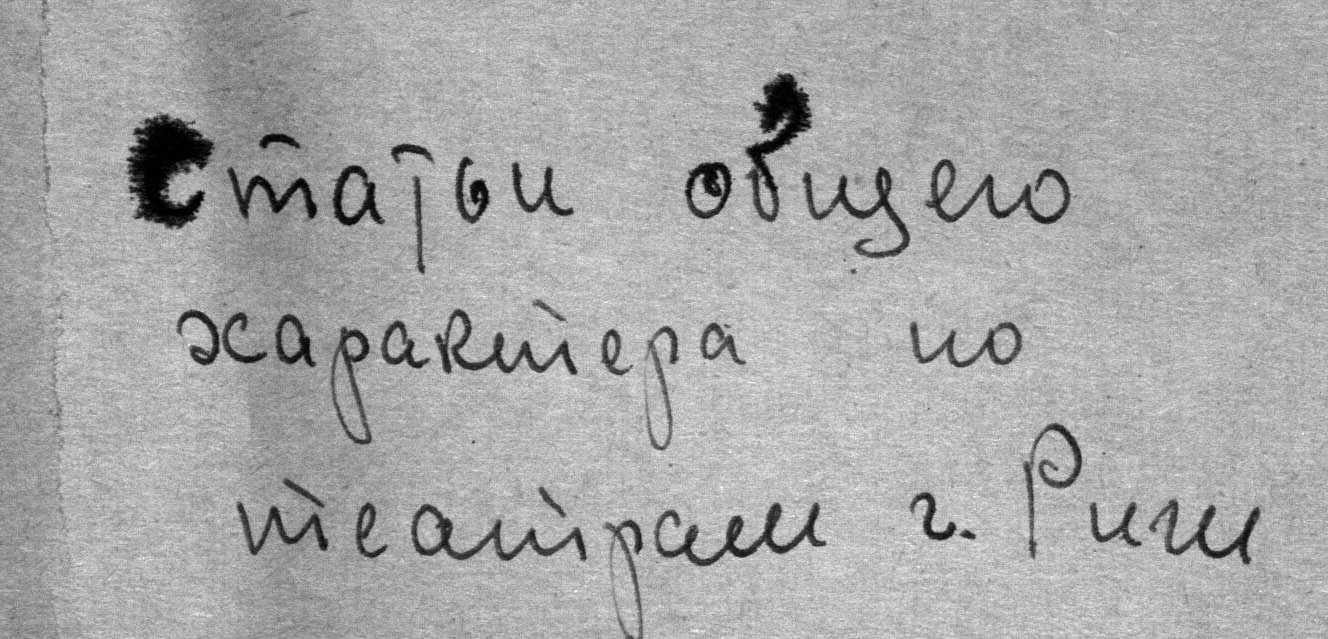 Статьи общего
характера по
театрам г. Риги